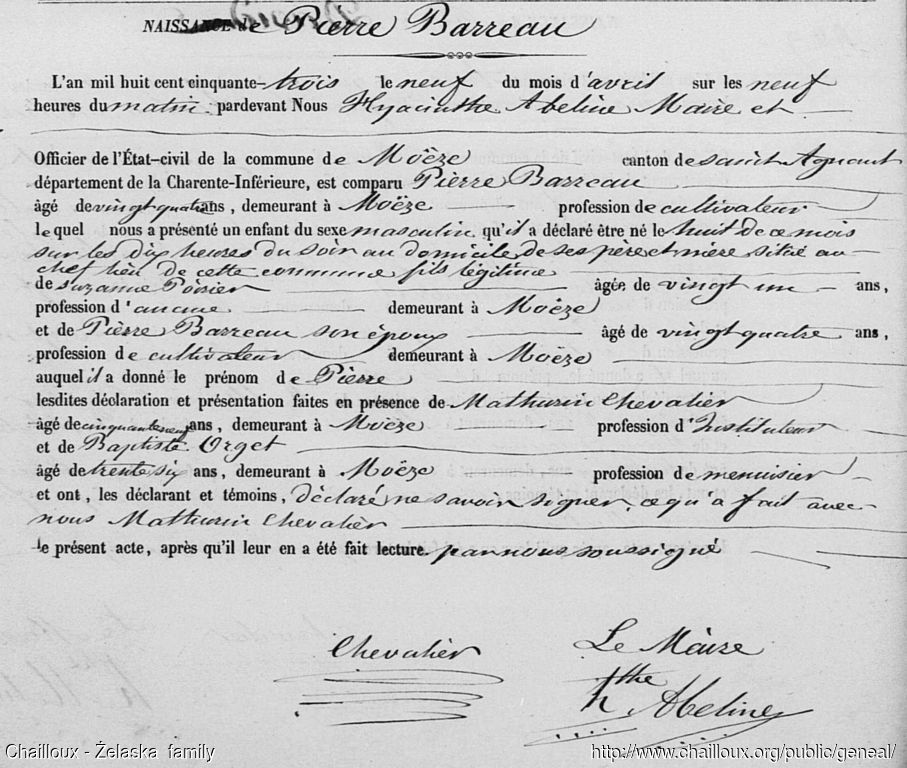 NAISSANCE de Pierre Barreau
L'an mil huit cent cinquante-trois le neuf du mois d'avril sur les neuf
heures du matin pardevant Nous Hyacinthe Abeline Maire et
Officier de l'État-civil de la commune de Moëze canton de saint Agnant
département de la Charente-Inférieure, est comparu Pierre Barreau
âgé de vingt quatre ans, demeurant à Moëze profession de cultivateur
lequel nous a présenté un enfant du sexe masculin qu'il a déclaré être né le huit de ce mois
sur les dix heures du soir au domicile de ses père et mère situé au
chef lieu de cette commune fils légitime
de Suzanne âgée de vingt un ans,
profession d'aucune demeurant à Moëze
et de Pierre Barreau son époux âgé de vingt quatre ans,
profession de cultivateur demeurant à Moëze
auquel il a donné le prénom de Pierre
lesdites déclaration et présentation faites en présence de Mathurin Chevalier
âgé de cinquante neuf ans, demeurant à Moëze profession d'Instituteur
et de Baptiste Orget
âgé de trente six ans, demeurant à Moëze profession de menuisier
et ont, les déclarant et témoins, déclaré ne savoir signer, ce qu'a fait avec
nous Mathurin Chevalier
le présent acte, après qu'il leur en a été fait lecture par nous soussigné
Chevalier
Le Maire
Hthe Abeline
Chailloux - Želaska family
http://www.chailloux.org/public/geneal/